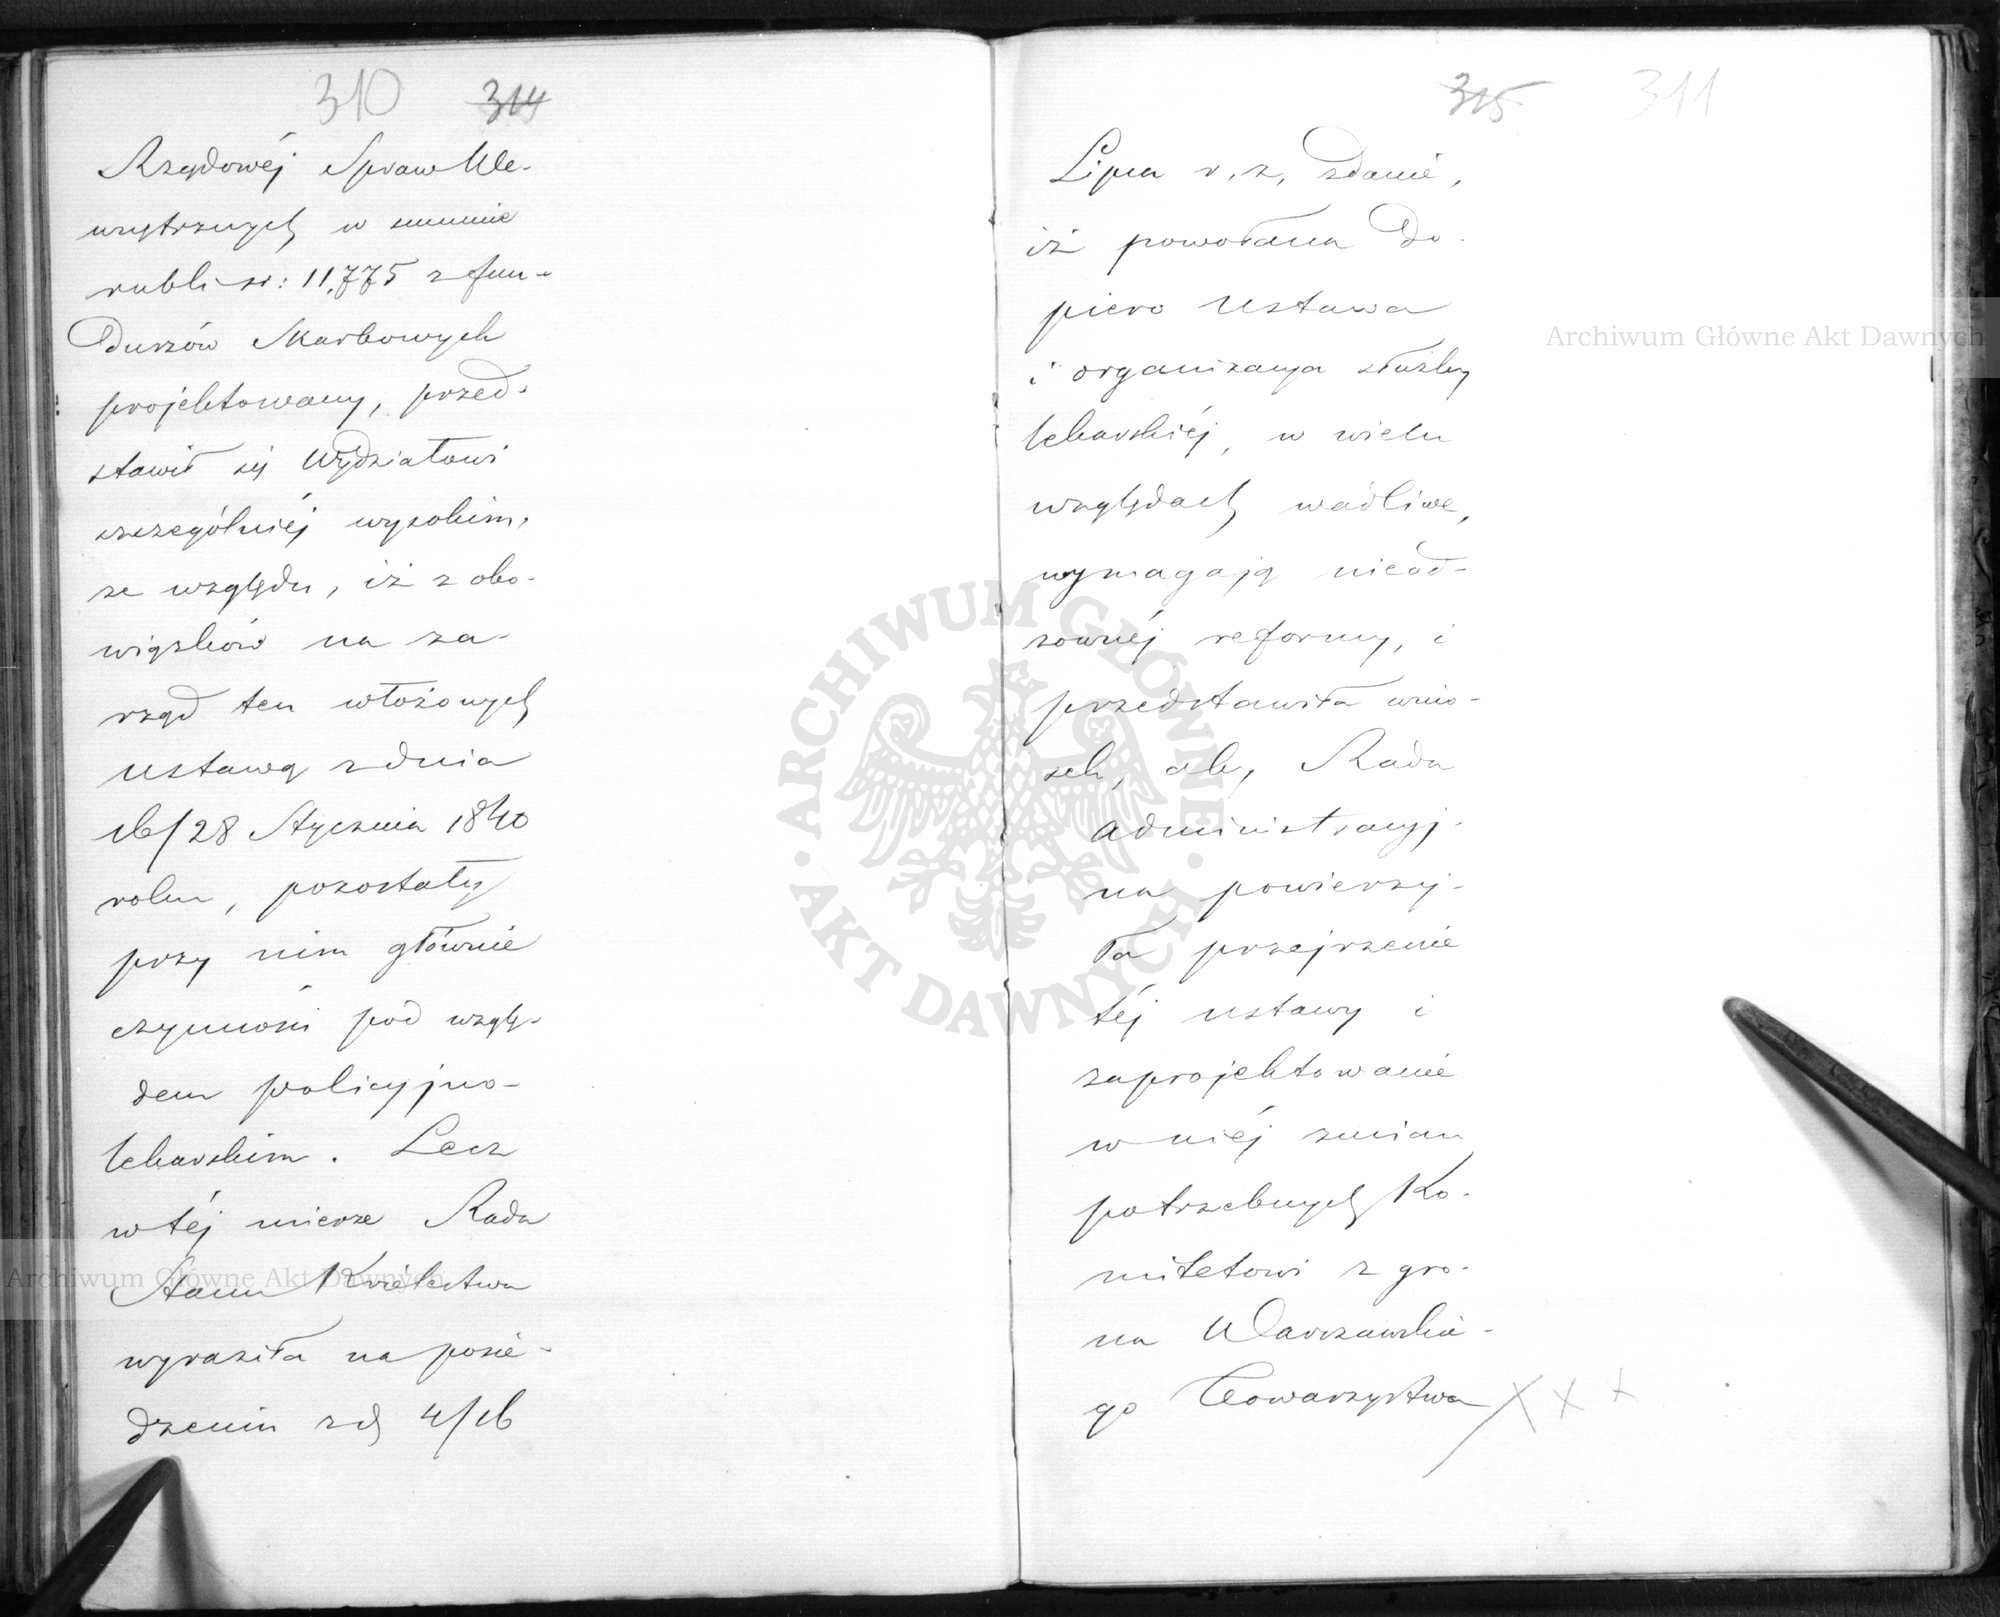 310 314
Rządowéj Spraw We-
wnętrznych w summie
rubli sr: 11,775 z fun-
duszów Skarbowych
projektowany, przed-
stawił się Wydziałowi
szczególniéj wysokim,
ze względu, iż z obo-
wiązków na za-
rząd ten włożonych
ustawą z dnia
16/28 Stycznia 1840
roku, pozostały
przy nim głównie
czynności pod wzglę-
dem policyjno-
lekarskim. Lecz
w téj mierze Rada
Stanu Królestwa
wyraziła na posie-
dzeniu z d 4/16
315 311
Lipca r. z. zdanie,
iż powołana do-
piero Ustawa
i organizacya służby
lekarskiéj, w wielu
względach wadliwe,
wymagają nieod-
zownéj reformy, i
przedstawiła wnio-
sek, aby Rada
Administracyj-
na powierzy-
ła przejrzenie
téj ustawy i
zaprojektowanie
w niéj zmian
potrzebnych Ko-
mitetowi z gro-
na Warszawskie-
go Towarzystwa
Archiwum Główne Akt Dawnych
Archiwum Główne Akt Dawnych
ARCHIWUM GŁÓWNE · AKT DAWNYCH ·